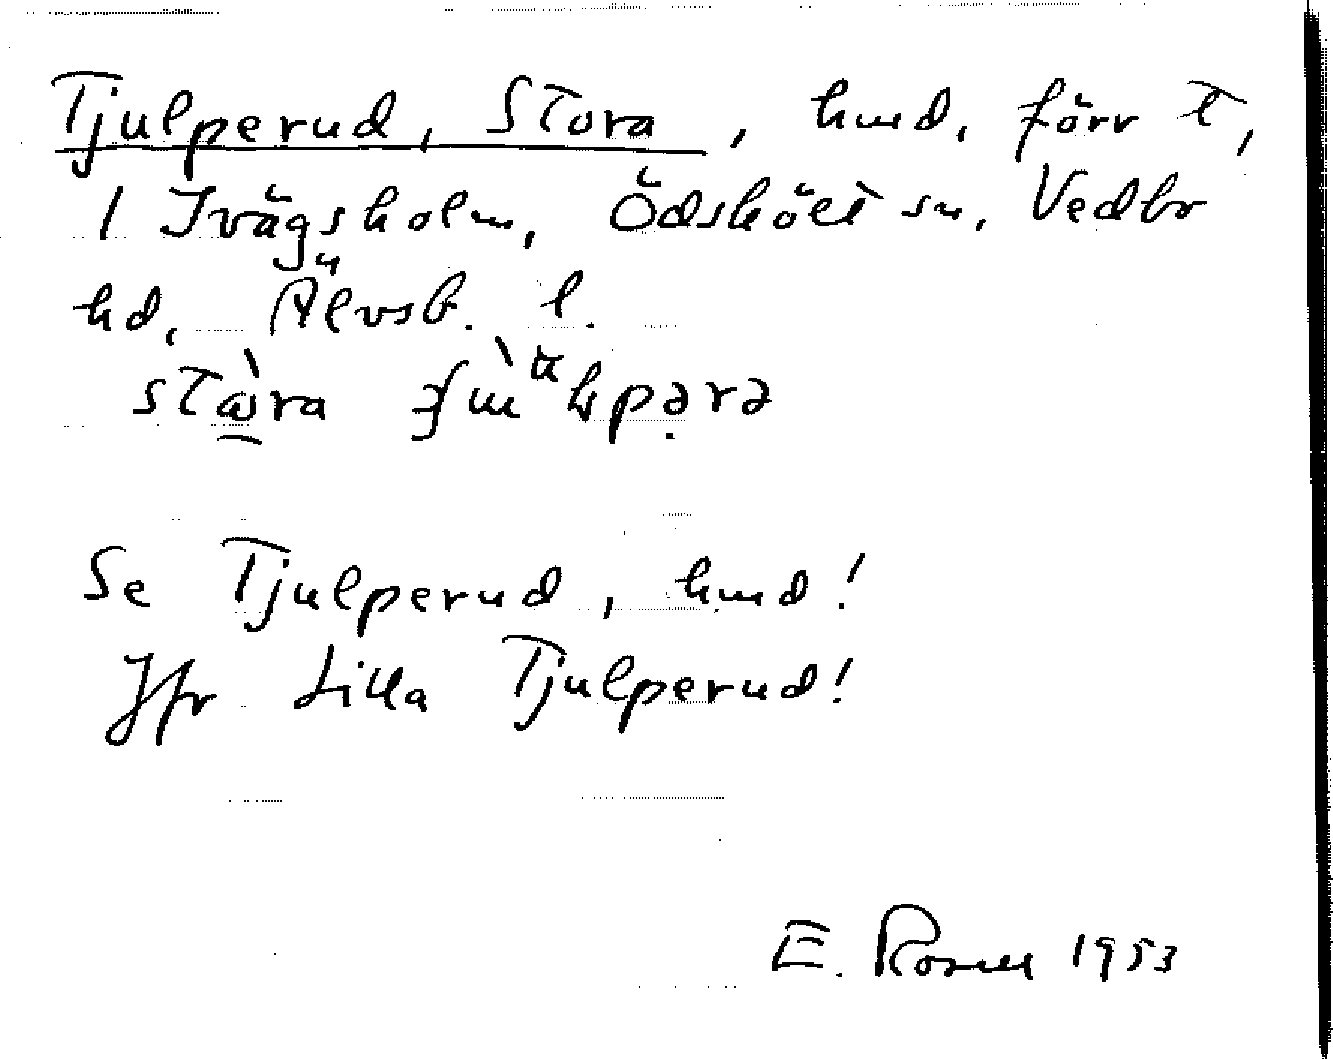 Tjulperud, Stora, hmd, förr t,
1 Ivägsholm, Ödskölt sn, Vedbo
hd, Älvsb. l.
Se Tjulperud, hmd!
Jfr Lilla Tjulperud!
E. Rosell 1953